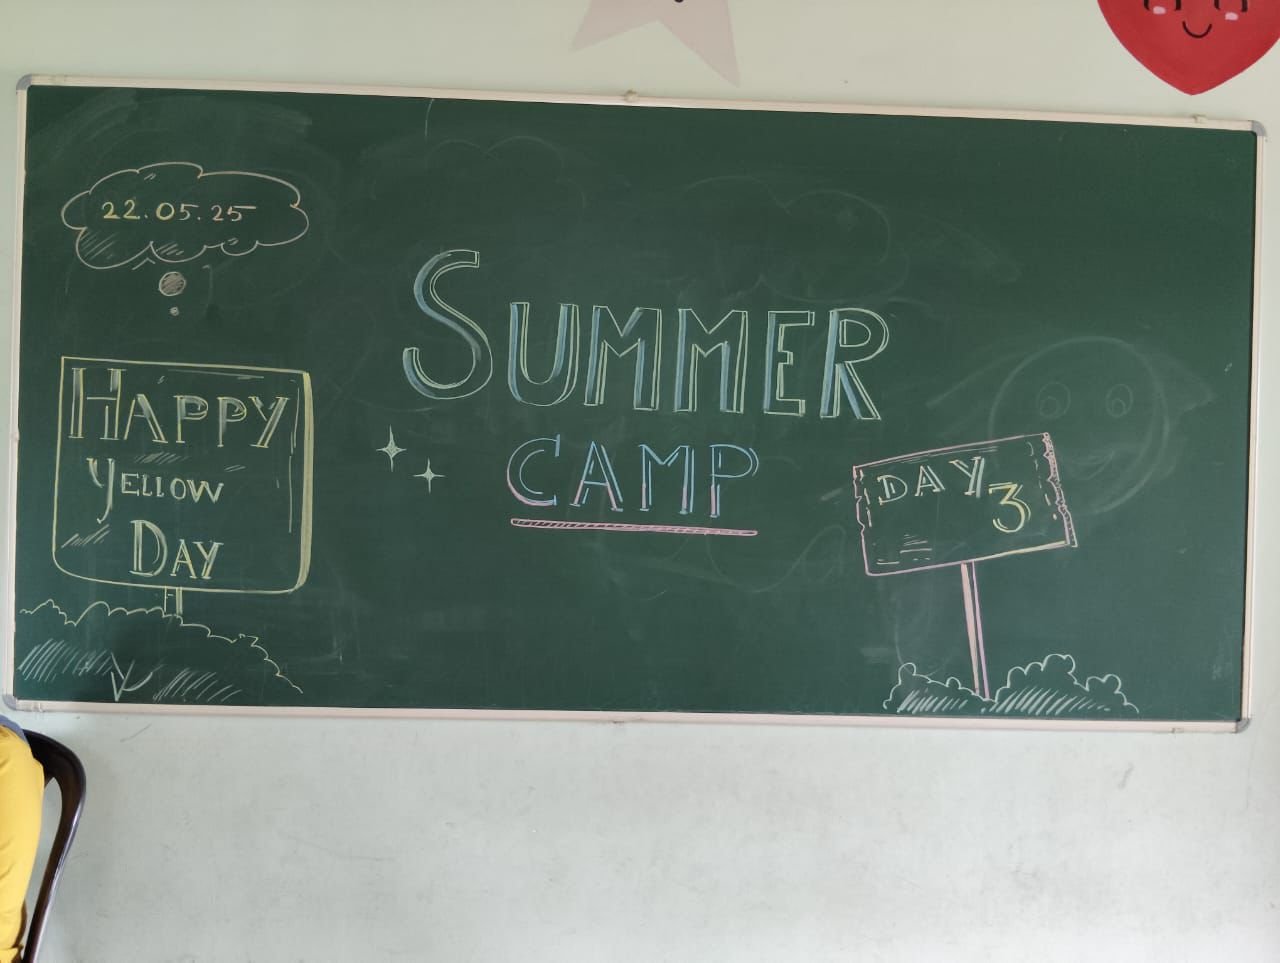 22.05.25
HAPPY
YELLOW
DAY
SUMMER
CAMP
DAY 3